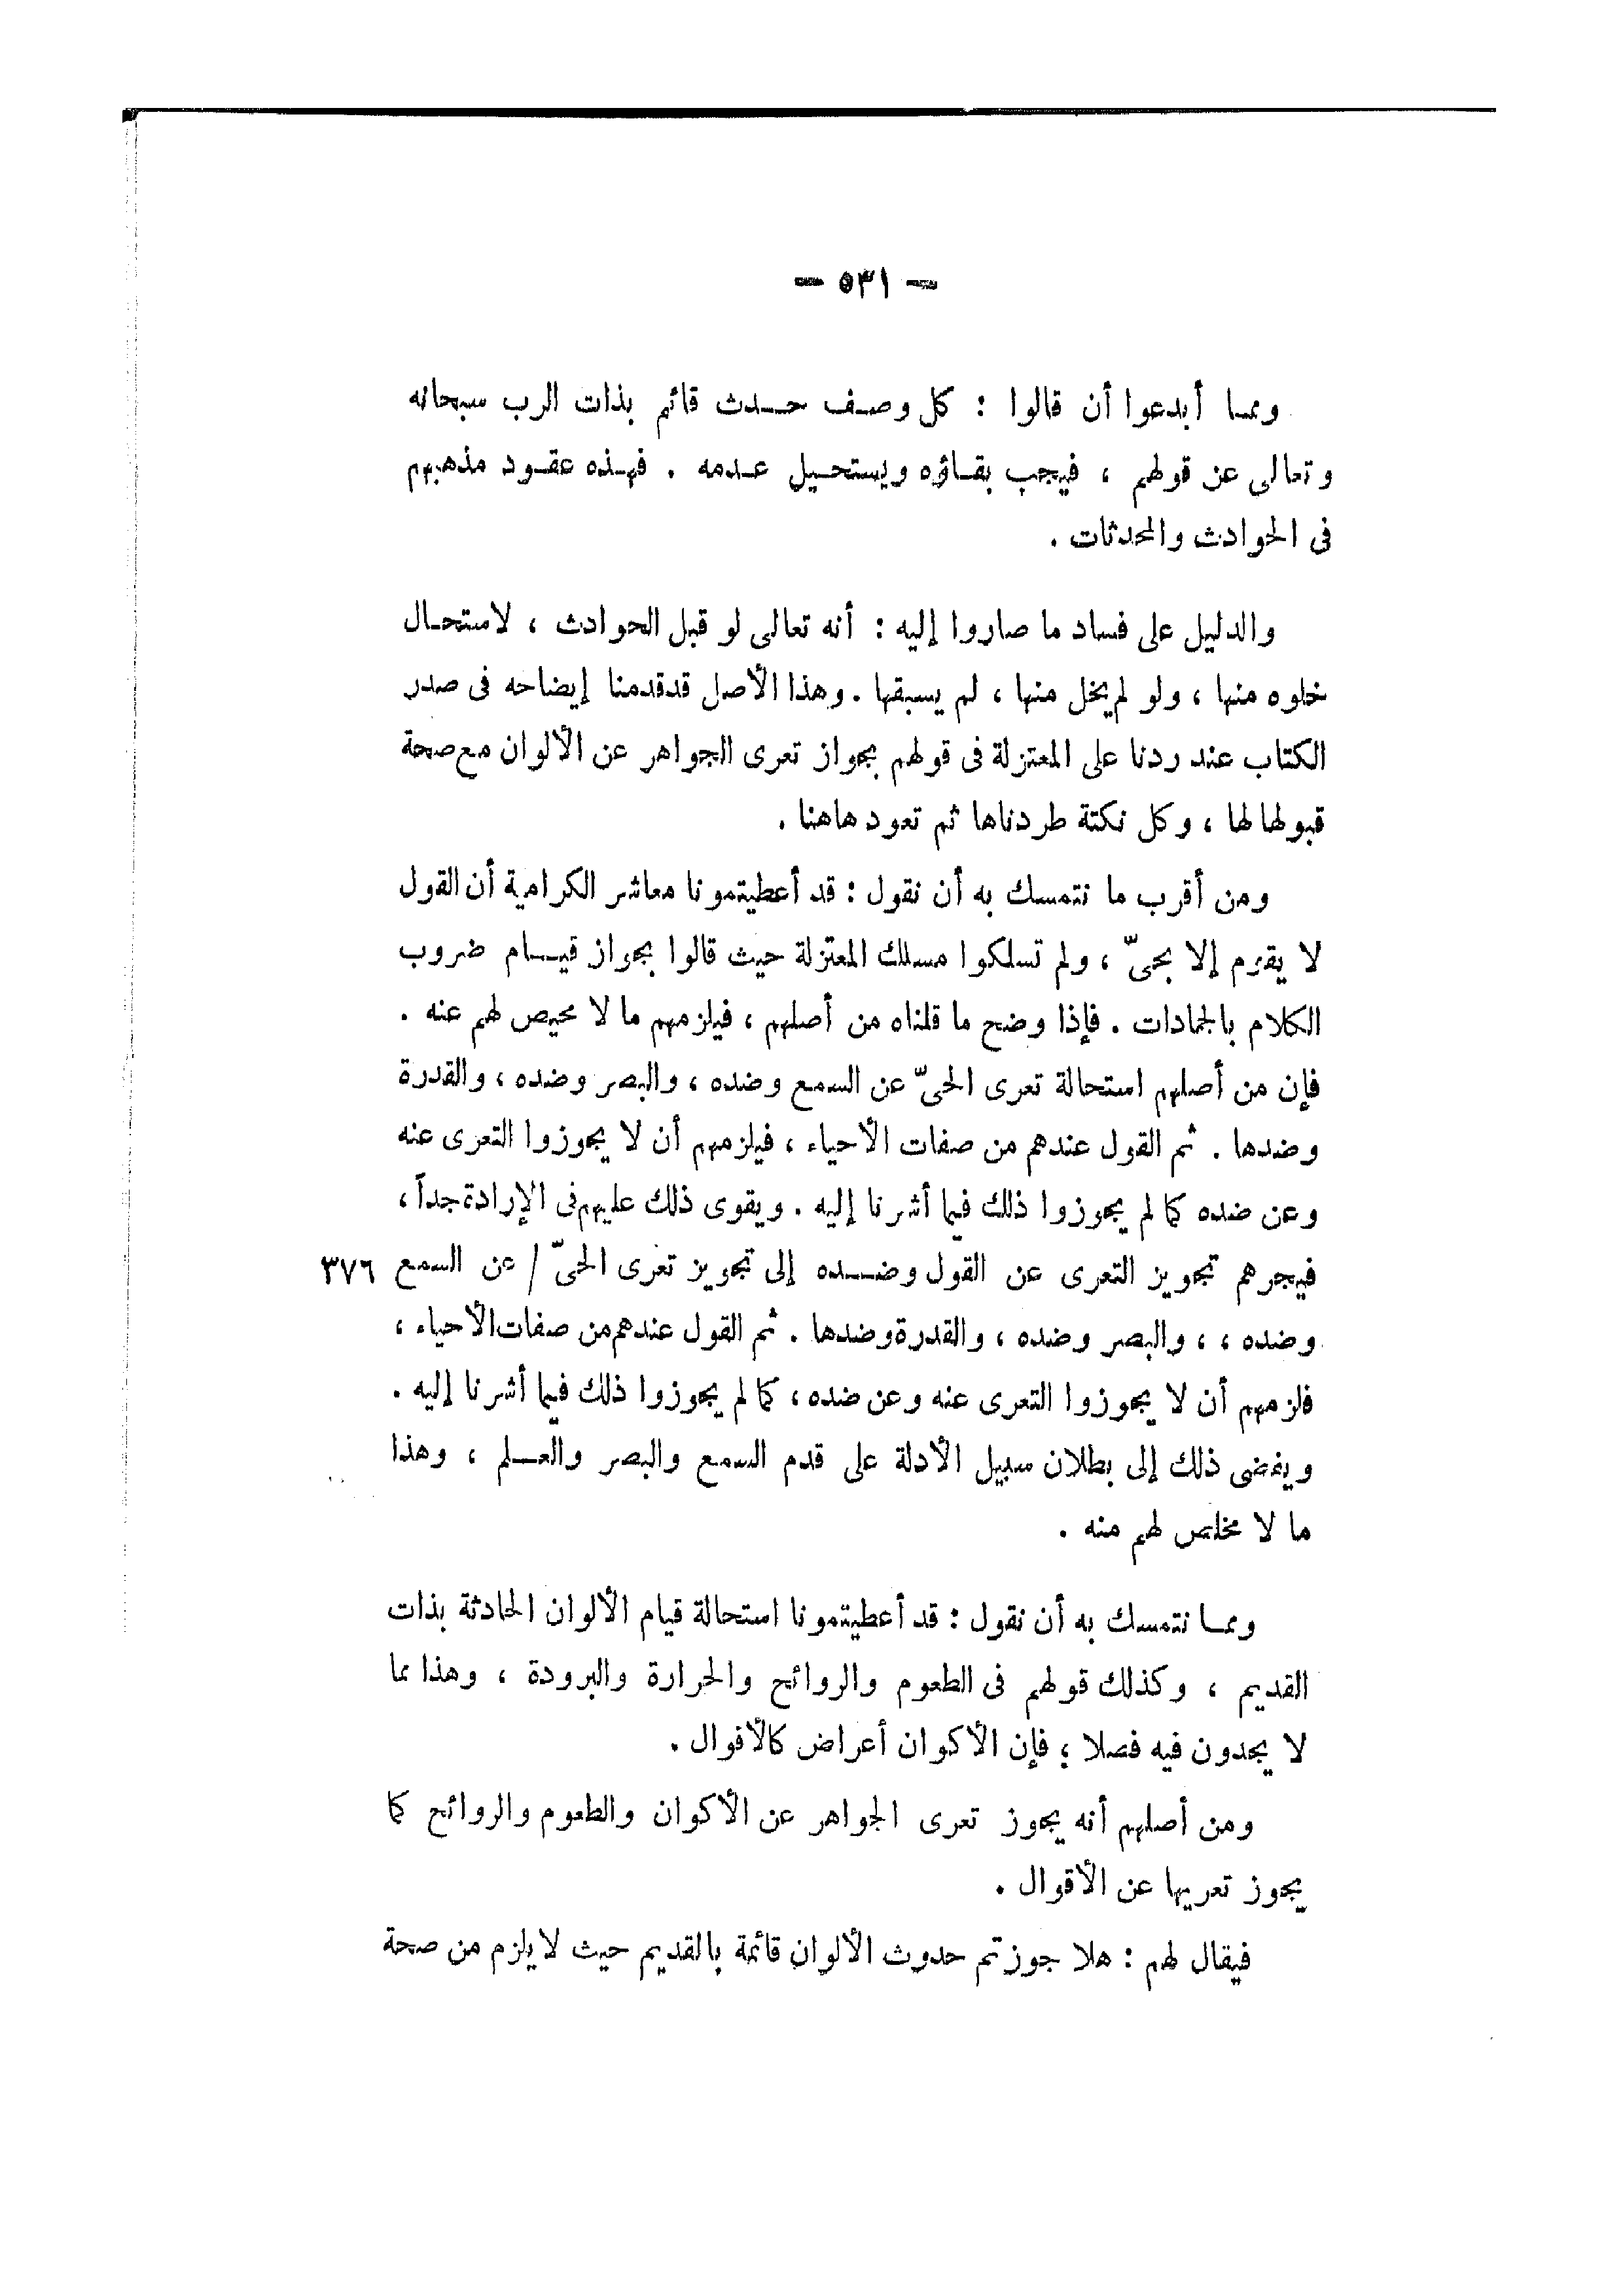 — ٥٣١ —
ومما أبدعوا أن قالوا : كل وصف حدث قائم بذات الرب سبحانه
وتعالى عن قولهم ، فيجب بقاؤه ويستحيل عدمه . فهذه عقود مذهبهم
فى الحوادث والمحدثات .
والدليل على فساد ما صاروا إليه : أنه تعالى لو قبل الحوادث ، لاستحال
خلوه منها ، ولو لم يخل منها ، لم يسبقها . وهذا الأصل قد قدمنا إيضاحه فى صدر
الكتاب عند ردنا على المعتزلة فى قولهم بجواز تعرى الجواهر عن الألوان مع صحة
قبولها لها ، وكل نكتة طردناها ثم تعود هاهنا .
ومن أقرب ما نتمسك به أن نقول : قد أعطيتمونا معاشر الكرامية أن القول
لا يقوم إلا بحىّ ، ولم تسلكوا مسلك المعتزلة حيث قالوا بجواز قيام ضروب
الكلام بالجمادات . فإذا وضح ما قلناه من أصلهم ، فيلزمهم ما لا محيص لهم عنه .
فإن من أصلهم استحالة تعرى الحىّ عن السمع وضده ، والبصر وضده ، والقدرة
وضدها . ثم القول عندهم من صفات الأحياء ، فيلزمهم أن لا يجوزوا التعرى عنه
وعن ضده كما لم يجوزوا ذلك فيما أشرنا إليه . ويقوى ذلك عليهم فى الإرادة جداً ،
فيجرهم تجويز التعرى عن القول وضده إلى تجويز تعرى الحىّ / عن السمع ٣٧٦
وضده ، ، والبصر وضده ، والقدرة وضدها . ثم القول عندهم من صفات الأحياء ،
فلزمهم أن لا يجوزوا التعرى عنه وعن ضده ، كما لم يجوزوا ذلك فيما أشرنا إليه .
ويفضى ذلك إلى بطلان سبيل الأدلة على قدم السمع والبصر والعلم ، وهذا
ما لا مخلص لهم منه .
ومما نتمسك به أن نقول : قد أعطيتمونا استحالة قيام الألوان الحادثة بذات
القديم ، وكذلك قولهم فى الطعوم والروائح والحرارة والبرودة ، وهذا مما
لا يجدون فيه فصلا ؛ فإن الأكوان أعراض كالأقوال .
ومن أصلهم أنه يجوز تعرى الجواهر عن الأكوان والطعوم والروائح كما
يجوز تعريها عن الأقوال .
فيقال لهم : هلا جوزتم حدوث الألوان قائمة بالقديم حيث لا يلزم من صحة